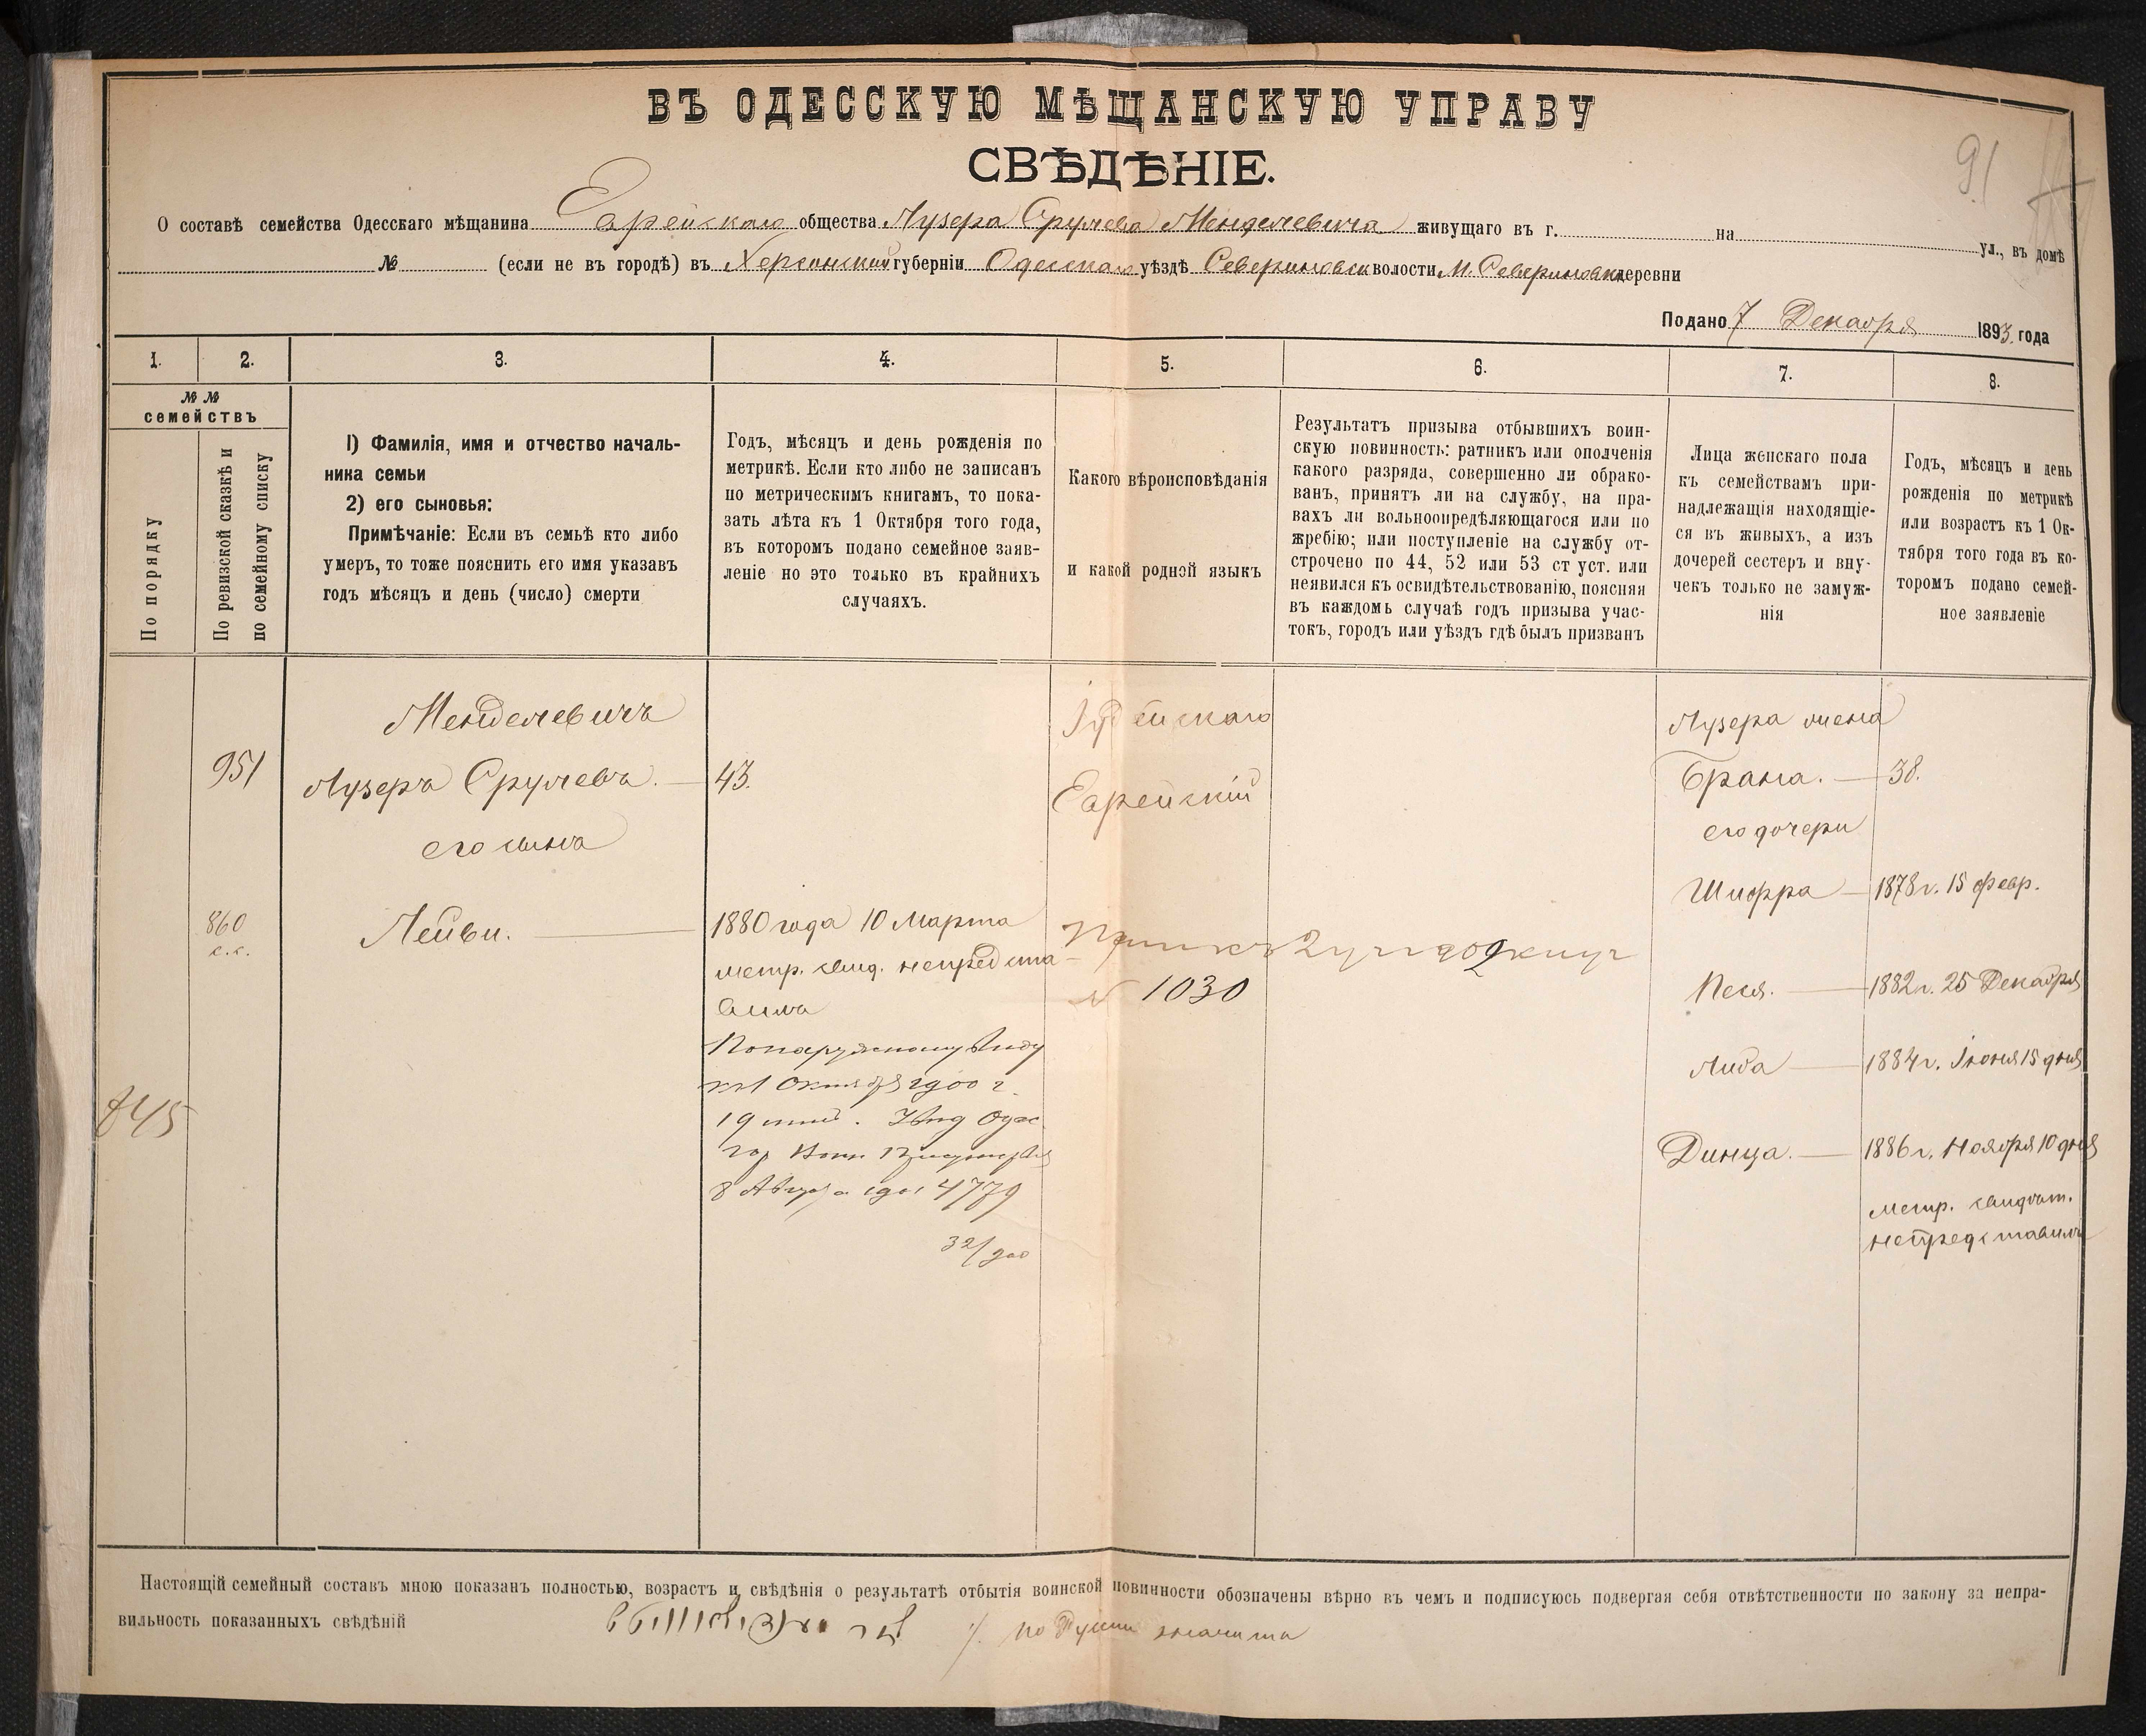 ВЪ ОДЕССКУЮ МѢЩАНСКУЮ УПРАВУ
СВѢДѢНІЕ.
91
О составѣ семейства Одесскаго мѣщанина Еврейскаго общества Лузера Срулева Менделевича живущаго въ г. на ул., въ домѣ
№ (если не въ городѣ) въ Херсонской губерніи Одесскаго уѣздѣ Севериновск волости М. Севериновка деревни
Подано 7 Декабря 1893 года
1. 2. 3. 4. 5. 6. 7. 8.
№ №
семействъ
По порядку
По ревизской сказкѣ и
по семейному списку
1) Фамилія, имя и отчество началь-
ника семьи
2) его сыновья:
Примѣчаніе: Если въ семьѣ кто либо
умеръ, то тоже пояснить его имя указавъ
годъ мѣсяцъ и день (число) смерти
Годъ, мѣсяцъ и день рожденія по
метрикѣ. Если кто либо не записанъ
по метрическимъ книгамъ, то пока-
зать лѣта къ 1 Октября того года,
въ которомъ подано семейное заяв-
леніе но это только въ крайнихъ
случаяхъ.
Какого вѣроисповѣданія
и какой родной языкъ
Результатъ призыва отбывшихъ воин-
скую повинность: ратникъ или ополченія
какого разряда, совершенно ли обрако-
ванъ, принятъ ли на службу, на пра-
вахъ ли вольноопредѣляющагося или по
жребію; или поступленіе на службу от-
строчено по 44, 52 или 53 ст уст. или
неявился къ освидѣтельствованію, поясняя
въ каждомъ случаѣ годъ призыва учас-
токъ, городъ или уѣздъ гдѣ былъ призванъ
Лица женскаго пола
къ семействамъ при-
надлежащія находящіе-
ся въ живыхъ, а изъ
дочерей сестеръ и вну-
чекъ только не замуж-
нія
Годъ, мѣсяцъ и день
рожденія по метрикѣ
или возрастъ къ 1 Ок-
тября того года въ ко-
торомъ подано семей-
ное заявленіе
Менделевичъ
951 Лузеръ Срулевъ. 43.
его сынъ
860
с.с.
Лейви. 1880 года 10 Марта
метр. свид. непредста-
вилъ
По наружному виду
къ 1 Октября 1900 г.
19 лѣтъ. Одес
8 Августа 4779
32/900
845
Іудейскаго
Еврейскій
№ 1030
Лузера жена
Брана. 38.
его дочери
Шифра 1878 г. 15 февр.
Песя. 1882 г. 25 Декабря
Либа 1884 г. Іюня 15 дня
Динца. 1886 г. Ноября 10 дня
метр. свидѣт.
непредставилъ
Настоящій семейный составъ мною показанъ полностью, возрастъ и свѣдѣнія о результатѣ отбытія воинской повинности обозначены вѣрно въ чемъ и подписуюсь подвергая себя отвѣтственности по закону за непра-
вильность показанныхъ свѣдѣній
по Руски значитъ